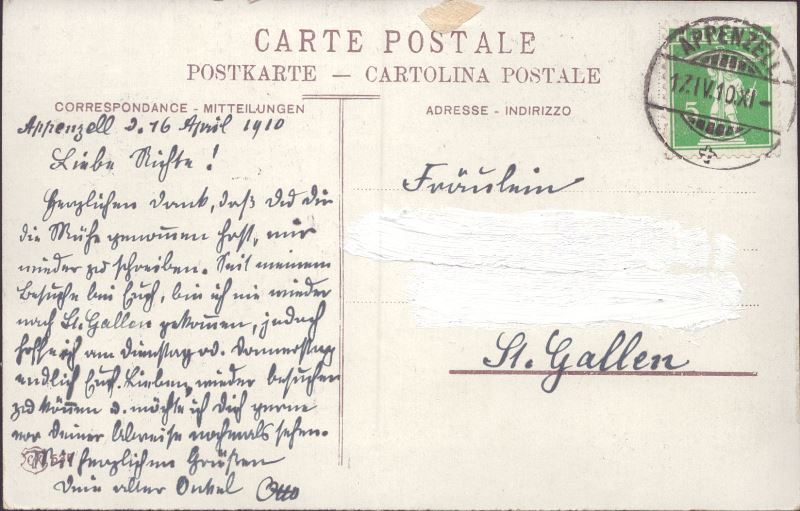 CARTE POSTALE
POSTKARTE — CARTOLINA POSTALE
CORRESPONDANCE - MITTEILUNGEN
ADRESSE - INDIRIZZO
APPENZELL
17.IV.10.XI-
5
Appenzell d. 16 April 1910
Liebe Nichte!
Herzlichen Dank, daß du dir
die Mühe genommen hast, mir
wieder zu schreiben. Seit meinem
Besuche bei Euch, bin ich nie wieder
nach St. Gallen gekommen, jedoch
hoffe ich am Dienstag od. Donnerstag
endlich Euch Lieben wieder besuchen
zu können u. möchte ich Dich gerne
vor Deiner Abreise nochmals sehen.
Mit herzlichen Grüßen
Dein alter Onkel Otto
Fräulein
St. Gallen